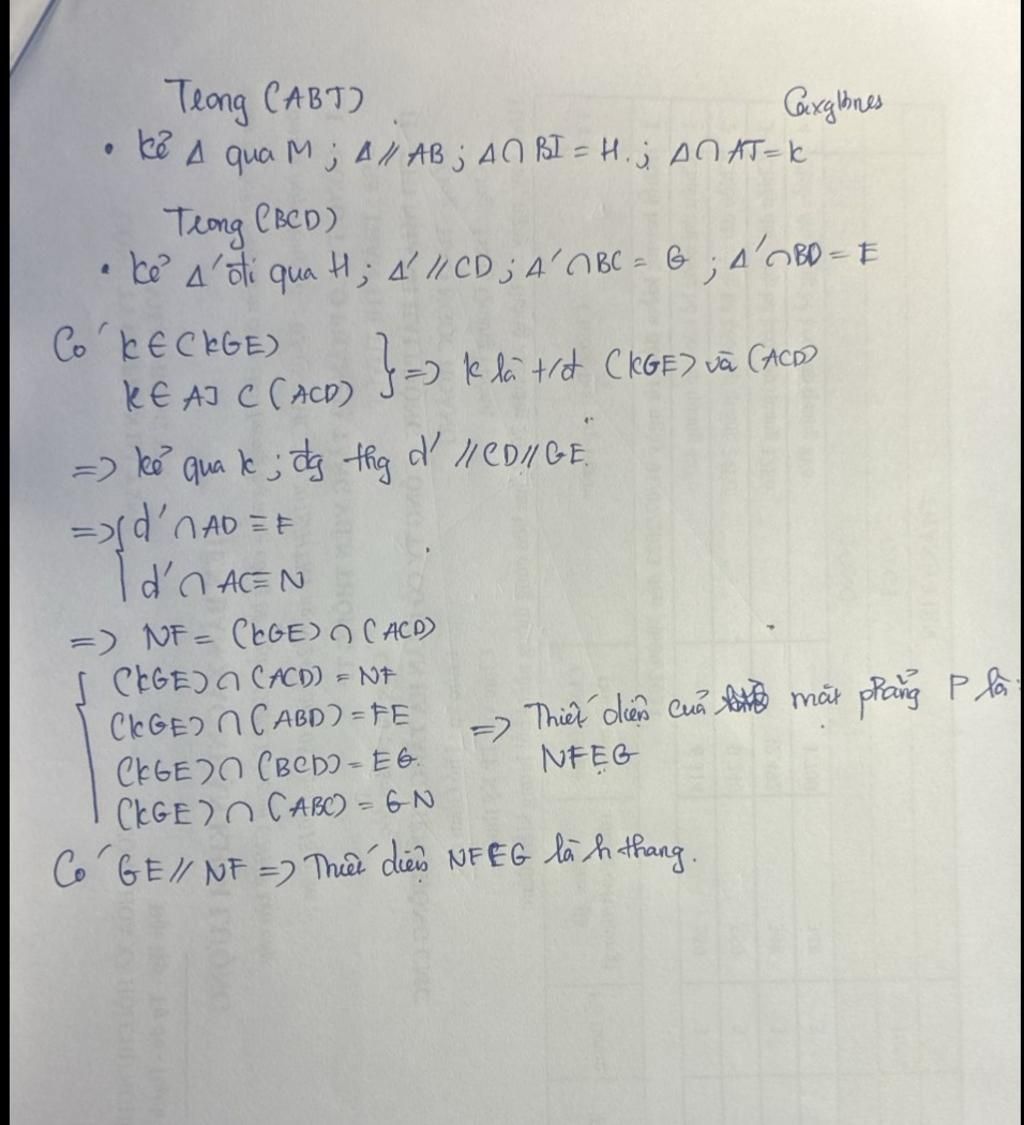 Trong (ABJ)
Caxg1bnes
• kẻ Δ qua M ; Δ // AB ; Δ ∩ BI = H. ; Δ ∩ AJ = k
Trong (BCD)
• kẻ Δ' đi qua H ; Δ' // CD ; Δ' ∩ BC = G ; Δ' ∩ BD = E
Có k ∈ (kGE)
k ∈ AJ ⊂ (ACD) } => k là t/đ (kGE) và (ACD)
=> kẻ qua k ; đg thg d' // CD // GE.
=> { d' ∩ AD ≡ F
d' ∩ AC ≡ N
=> NF = (kGE) ∩ (ACD)
{ (kGE) ∩ (ACD) = NF
(kGE) ∩ (ABD) = FE => Thiết diện của mặt phẳng P là:
(kGE) ∩ (BCD) = EG. NFEG
(kGE) ∩ (ABC) = GN
Có GE // NF => Thiết diện NFEG là h thang.